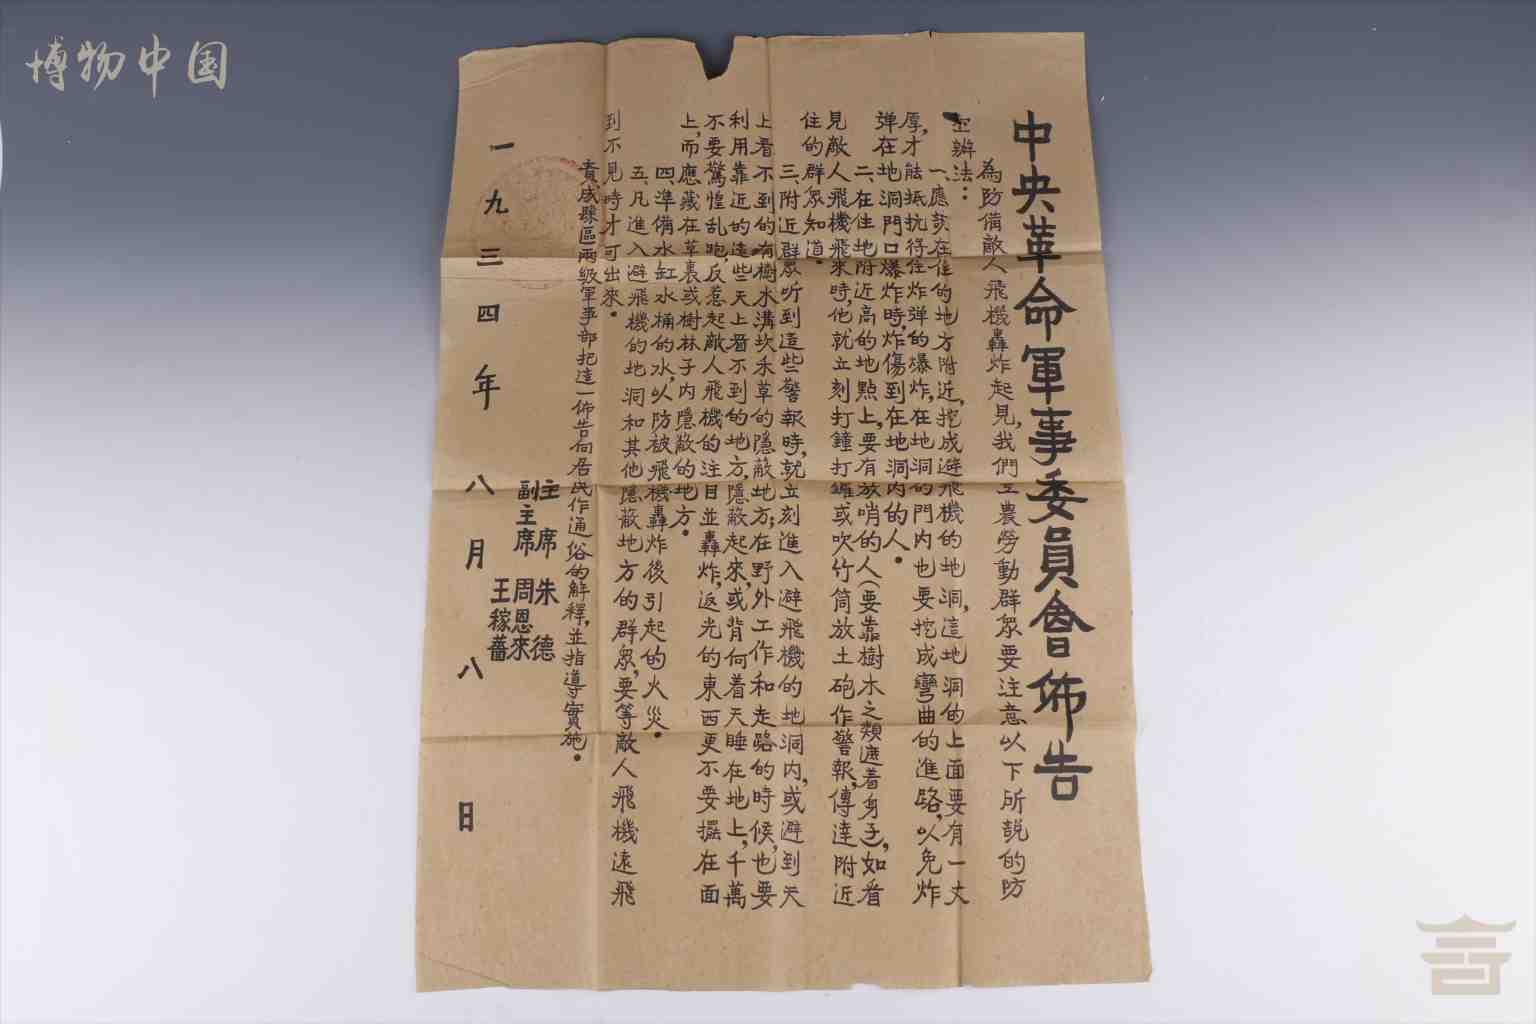 博物中国
中央革命軍事委員會佈告
為防備敵人飛機轟炸起見,我們工農勞動群眾要注意以下所說的防
空辦法:
一、應該在住的地方附近,挖成避飛機的地洞,這地洞的上面要有一丈
厚,才能抵抗得住炸弹的爆炸,在地洞的門內也要挖成彎曲的進路,以免炸
弹在地洞門口爆炸時,炸傷到在地洞内的人。
二、在住地附近高的地點上,要有放哨的人(要靠樹木之類遮着身子,如看
見敵人飛機飛來時,他就立刻打鐘打鑼或吹竹筒放土砲作警報,傳達附近
住的群眾知道。
三、附近群眾听到這些警報時,就立刻進入避飛機的地洞内,或避到天
上看不到的有樹木溝坎禾草的隱蔽地方;在野外工作和走路的時候,也要
利用靠近的這些天上看不到的地方,隱蔽起來,或背向着天睡在地上,千萬
不要驚惶乱跑,反惹起敵人飛機的注目並轟炸,返光的東西更不要擺在面
上,而應藏在草裏或樹林子内隱蔽的地方。
四、準備水缸水桶的水,以防被飛機轟炸後引起的火災。
五、凡進入避飛機的地洞和其他隱蔽地方的群眾,要等敵人飛機遠飛
到不見時才可出來。
責成縣區兩级軍事部把這一佈告向居民作通俗的解釋,並指導實施。
主席 朱德
副主席 周恩來
王稼薔
一九三四年八月八日